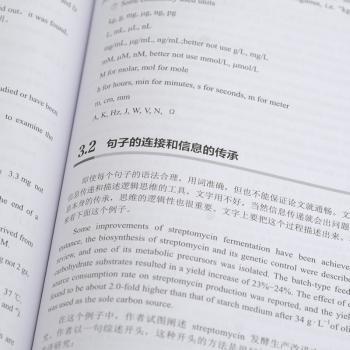 out, it was found,
⑦ Some commonly used units
kg, g, mg, μg, ng, pg
L, mL, μL, nL
mg/mL, μg/mL, ng/mL;better not use g/L, mg/L
mM, μM, nM, better not use mmol/L, μmol/L
M for molar, mol for mole
h for hours, min for minutes, s for seconds, m for meter
m, cm, mm
A, K, Hz, J, W, V, N, Ω
studied or have been
to examine the
3.3 mg not
the end of a
derived from
mg not 2 gs,
3.2 句子的连接和信息的传承
即使每个句子的语法合理，用词准确，但也不能保证论文就通畅。文
信息传递和描述逻辑思维的工具，文字用不好，当然信息传递就会出问题
息本身的传承，思维的逻辑性也很重要，文字上要把这个过程描述出来。
来看下面这个例子。
Some improvements of streptomycin fermentation have been achieve
instance, the biosynthesis of streptomycin and its genetic control were describe
review, and one of its metabolic precursors was isolated. The batch-type feed
carbohydrate substrates resulted in a yield increase of 23%~24%. The effect of
source consumption rate on streptomycin production was reported, and the yield
found to be about 2.0-fold higher than that of starch medium after 34 g·L⁻¹ of oli
was used as the sole carbon source.
在这个例子中，作者试图阐述 streptomycin 发酵生产改进
究，作者以一句综述开头，这种开头的方法是